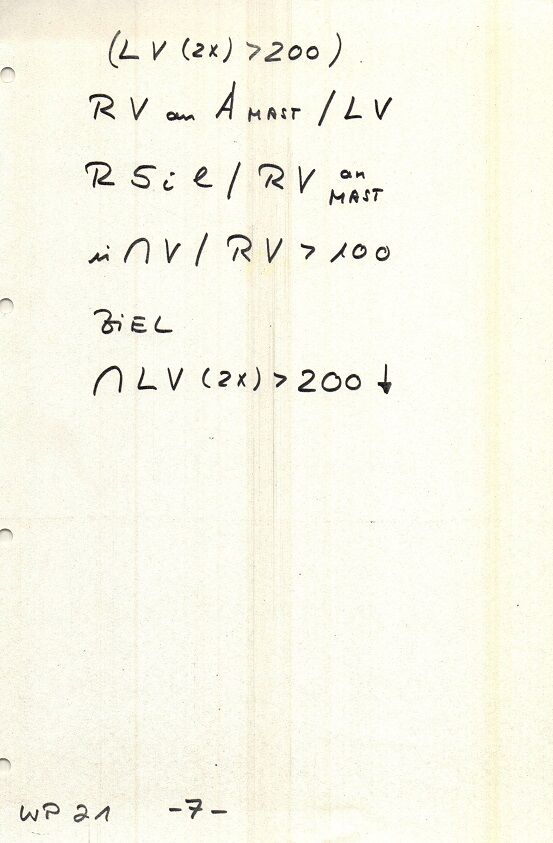 (LV (2x) > 200)
RV an A MAST / LV
R Sie / RV an MAST
in ∩ V / RV > 100
ZiEL
∩ LV (2x) > 200 ↓
WP 21 -7-